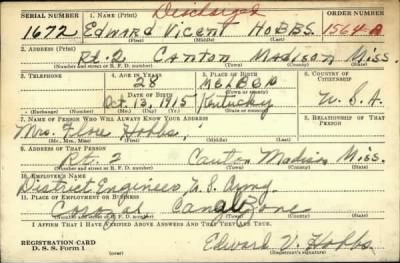 Discharged
SERIAL NUMBER 1. NAME (Print) ORDER NUMBER
1672 Edward Vicent HOBBS 1564-A
(First) (Middle) (Last)
2. ADDRESS (Print)
Rt. 2 Canton Madison Miss.
(Number and street or R. F. D. number) (Town) (County) (State)
3. TELEPHONE 4. AGE IN YEARS 5. PLACE OF BIRTH 6. COUNTRY OF CITIZENSHIP
28
DATE OF BIRTH (Town or county)
Oct. 13, 1915 Kentucky U. S. A.
(Exchange) (Number) (Mo.) (Day) (Yr.) (State or country)
7. NAME OF PERSON WHO WILL ALWAYS KNOW YOUR ADDRESS 8. RELATIONSHIP OF THAT PERSON
Mrs. Hobbs,
(Mr., Mrs., Miss) (First) (Middle) (Last)
9. ADDRESS OF THAT PERSON
Rt. 2 Canton Madison Miss.
(Number and street or R. F. D. number) (Town) (County) (State)
10. EMPLOYER'S NAME
District Engineer U. S. Army.
11. PLACE OF EMPLOYMENT OR BUSINESS
Canal Zone
(Number and street or R. F. D. number) (Town) (County) (State)
I AFFIRM THAT I HAVE VERIFIED ABOVE ANSWERS AND THAT THEY ARE TRUE.
REGISTRATION CARD
D. S. S. Form 1
Edward V. Hobbs